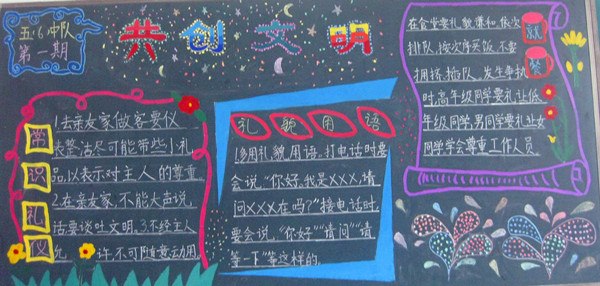 五·6中队
第一期
共创文明
常识礼仪
1去亲友家做客要仪
表整洁尽可能带些小礼
品,以表示对主人的尊重。
2.在亲友家,不能大声说
话要谈吐文明,3.不经主人
允许,不可随意动用
礼貌用语
1多用礼貌用语,打电话时要
会说,“你好,我是XXX,请
问XXX在吗?”接电话时,
要会说,“你好”“请问”“请
等一下”等这样的,
就餐
在食堂要礼貌谦和,依次
排队,按次序买饭,不要
拥挤,插队,发生争执
时,高年级同学要礼让低
年级同学,男同学要礼让女
同学学会尊重工作人员